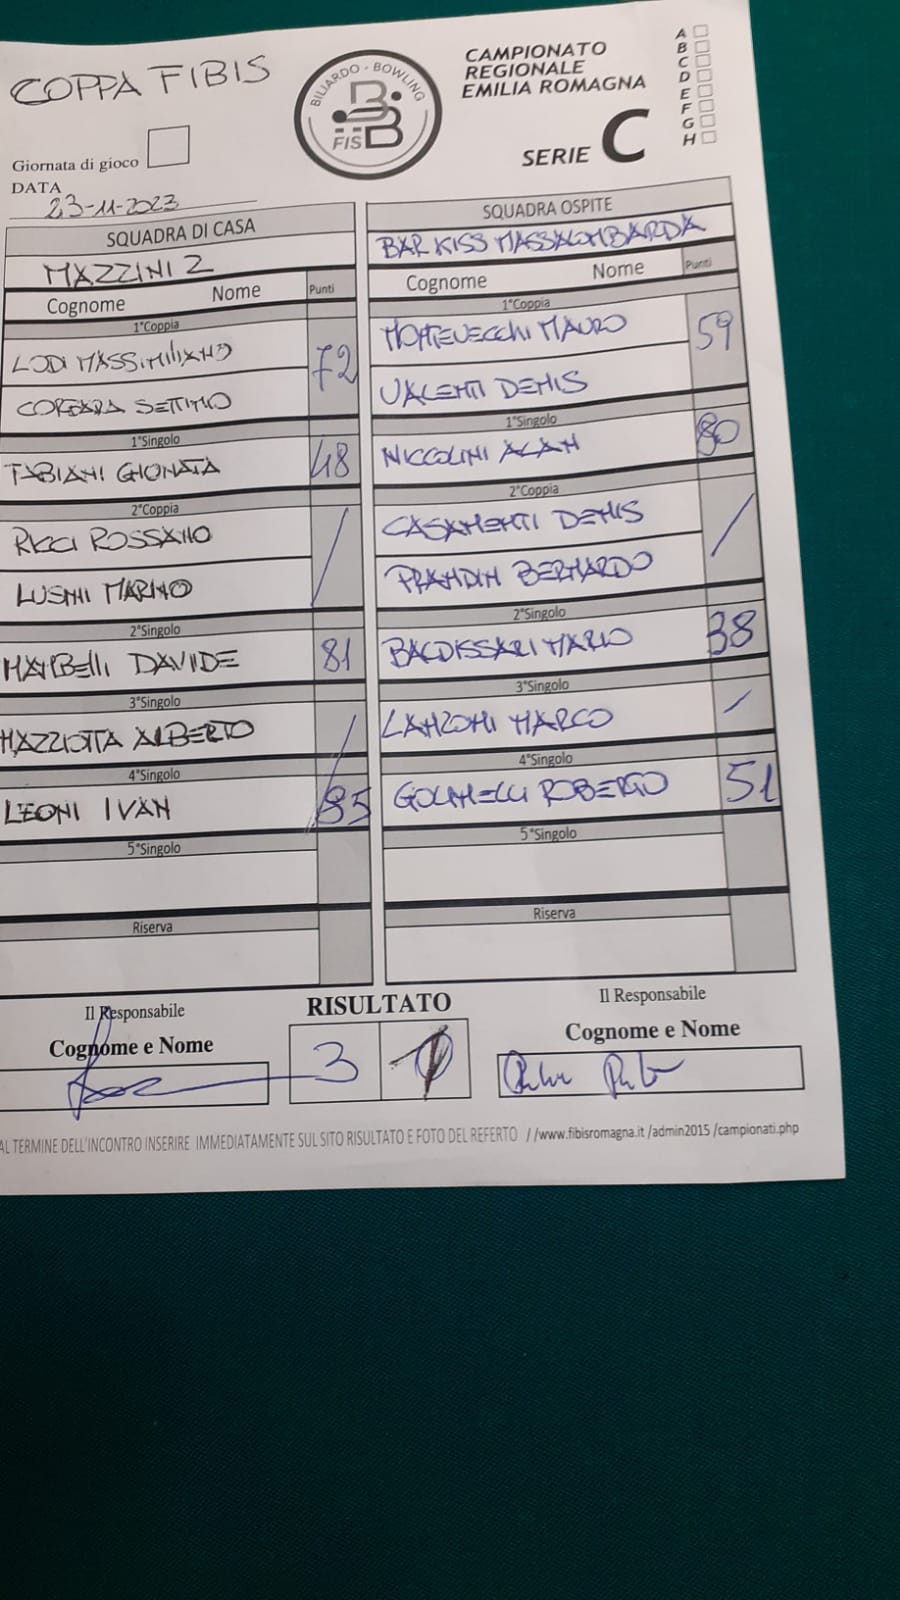 COPPA FIBIS
BILIARDO - BOWLING
FISBB
CAMPIONATO
REGIONALE
EMILIA ROMAGNA
SERIE C
A
B
C
D
E
F
G
H
Giornata di gioco
DATA
23-11-2023
SQUADRA DI CASA
MAZZINI 2
Cognome Nome Punti
1°Coppia
LODI MASSIMILIANO 72
CORBARA SETTIMO
1°Singolo
FABIANI GIONATA 48
2°Coppia
RICCI ROSSANO /
LUSINI MARINO
2°Singolo
DAVIDE 81
3°Singolo
MAZZIOTTA ALBERTO /
4°Singolo
LEONI IVAN 85
5°Singolo
Riserva
SQUADRA OSPITE
BAR KISS MASSALOMBARDA
Cognome Nome Punti
1°Coppia
MONTEVECCHI MAURO 59
VALENTI DENIS
1°Singolo
NICCOLINI ALAN 80
2°Coppia
CASAMENTI DENIS /
PRANDINI BERNARDO
2°Singolo
BALDISSARI MARIO 38
3°Singolo
LANZONI MARCO /
4°Singolo
GOLINELLI ROBERTO 51
5°Singolo
Riserva
Il Responsabile
Cognome e Nome
RISULTATO
3 1
Il Responsabile
Cognome e Nome
AL TERMINE DELL'INCONTRO INSERIRE IMMEDIATAMENTE SUL SITO RISULTATO E FOTO DEL REFERTO //www.fibisromagna.it /admin2015 /campionati.php